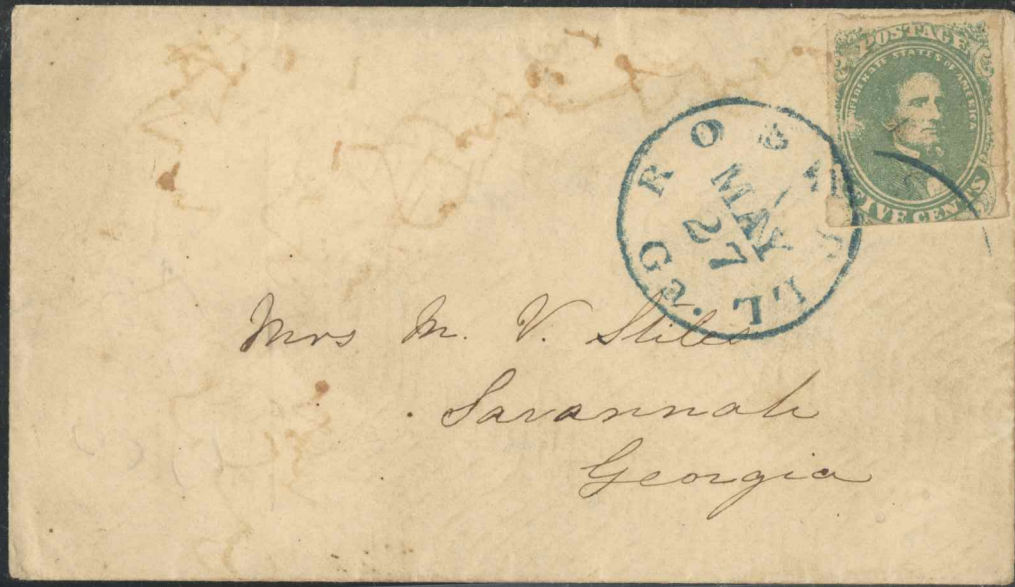 POSTAGE
CONFEDERATE STATES OF AMERICA
FIVE CENTS
ROSWELL. Ga
MAY
27
Mrs M. V. Stiles
Savannah
Georgia